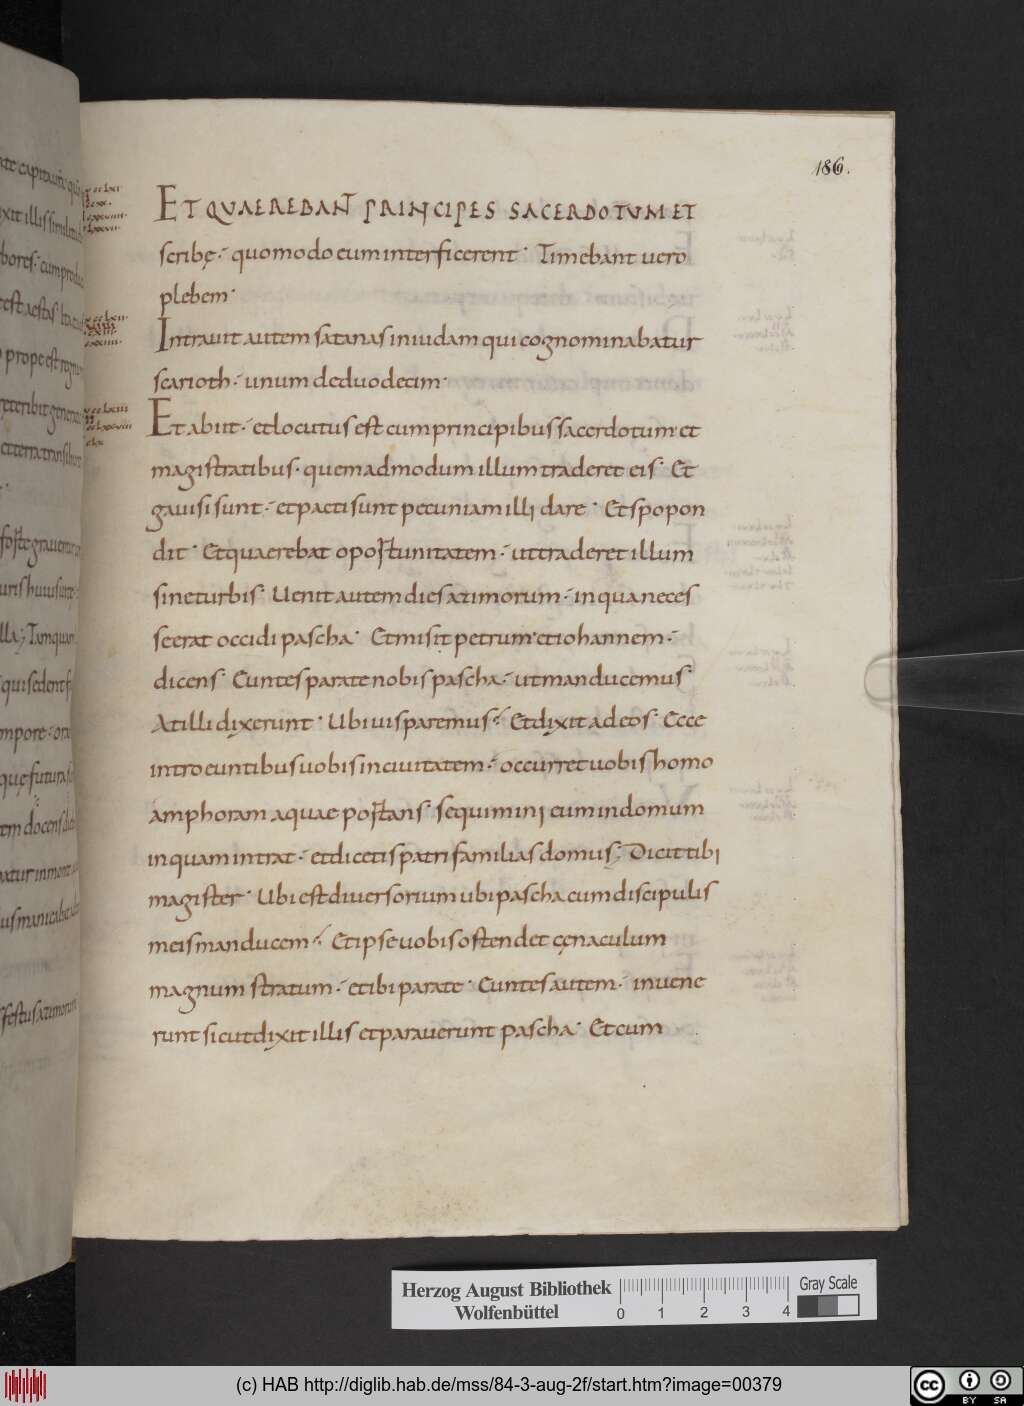 186.
ET QUAEREBANT PRINCIPES SACERDOTUM ET
scribę quomodo eum interficerent. Timebant uero
plebem.
Intrauit autem satanas in iudam qui cognominabatur
scarioth. unum de duodecim.
Et abiit. et locutus est cum principibus sacerdotum et
magistratibus. quemadmodum illum traderet eis. Et
gauisi sunt. et pacti sunt pecuniam illi dare. Et spopon
dit. Et quaerebat oportunitatem. ut traderet illum
sine turbis. Uenit autem dies azimorum. in qua neces
se erat occidi pascha. Et misit petrum et iohannem.
dicens. Euntes parate nobis pascha. ut manducemus.
At illi dixerunt. Ubi uis paremus. Et dixit ad eos. Ecce
introeuntibus uobis in ciuitatem. occurret uobis homo
amphoram aquae portans. sequimini eum in domum
in quam intrat. et dicetis patri familias domus; Dicit tibi
magister. Ubi est diuersorium ubi pascha cum discipulis
meis manducem. Et ipse uobis ostendet cęnaculum
magnum stratum. et ibi parate. Euntes autem. inuene
runt sicut dixit illis et parauerunt pascha. Et cum
Herzog August Bibliothek
Wolfenbüttel
0 1 2 3 4
Gray Scale
(c) HAB http://diglib.hab.de/mss/84-3-aug-2f/start.htm?image=00379
cc BY SA